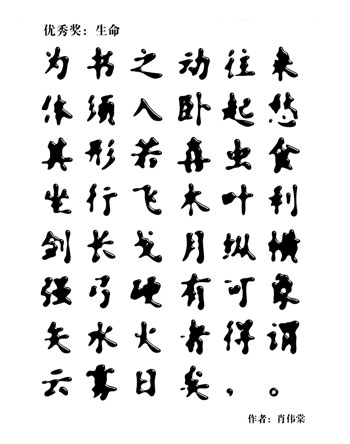 优秀奖：生命
为书之动往来
体须入卧起愁
其形若虫食
坐行飞木叶利
剑长戈月纵横
强弓硬有可象
矢水火者得谓
云雾日矣，。
作者：肖伟棠